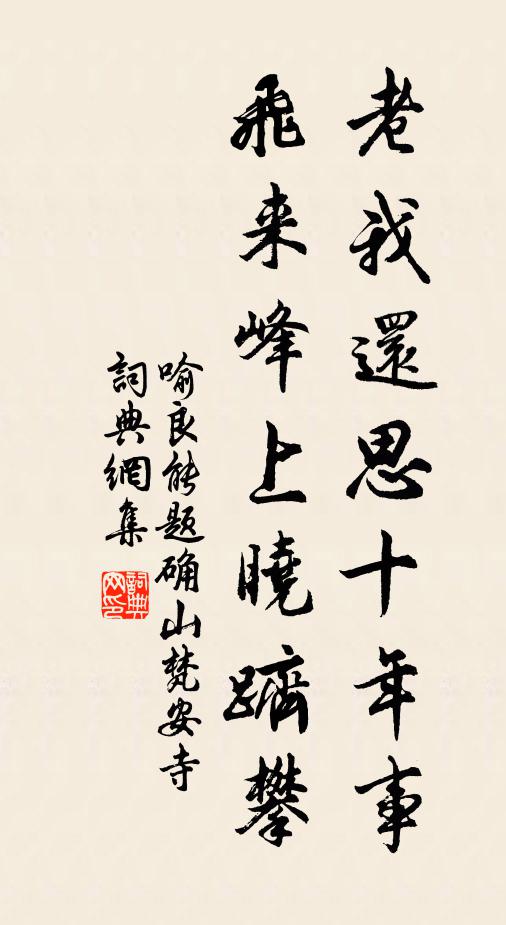 老我還思十年事
飛来峰上曉躋攀
喻良能题确山梵安寺
詞典網集
詞典网印